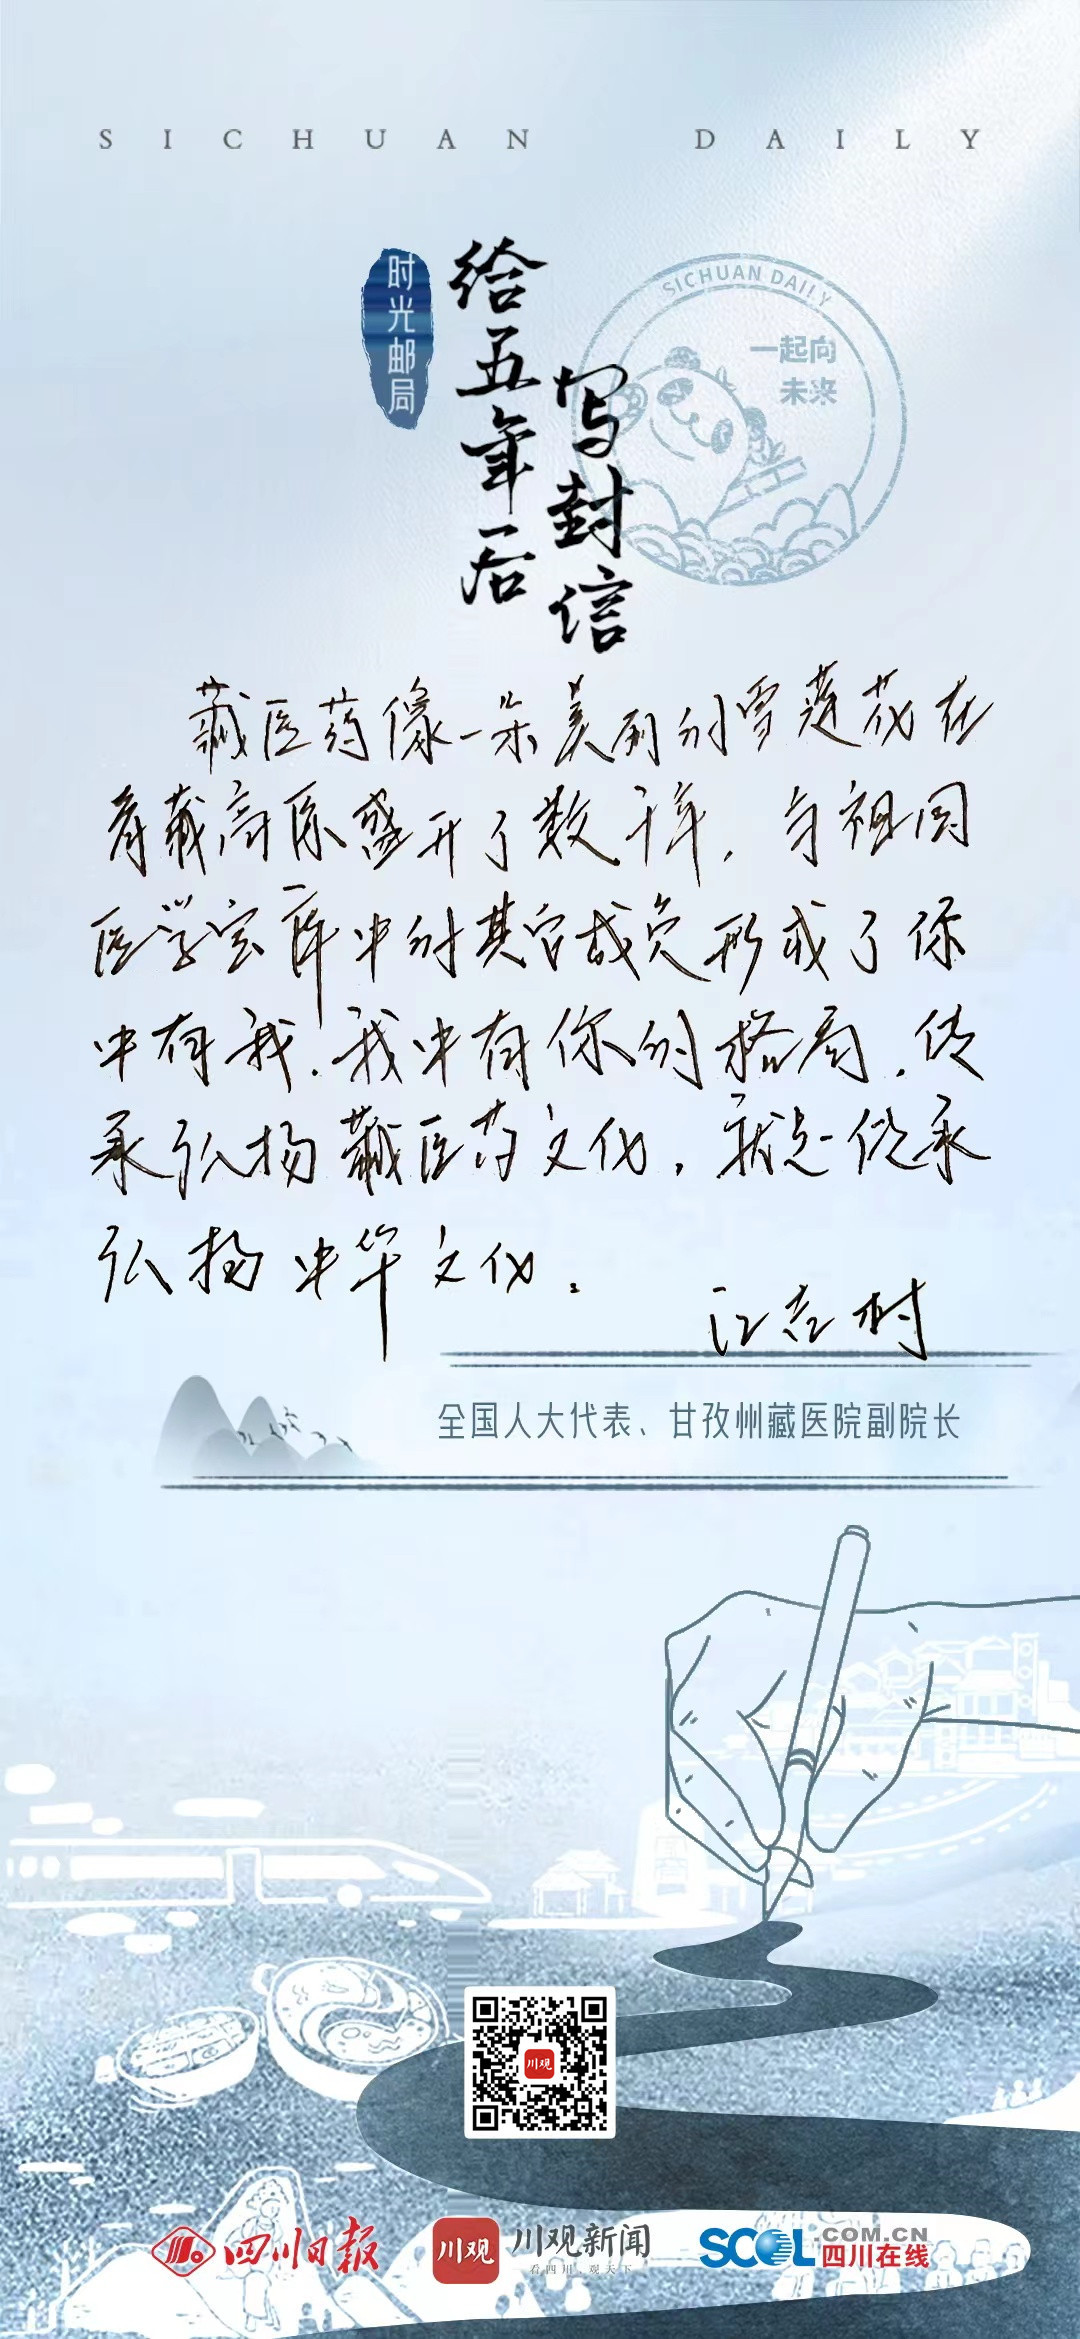 SICHUAN DAILY
时光邮局
给五年后
写封信
SICHUAN DAILY
一起向
未来
藏医药像一朵美丽的雪莲花在
青藏高原盛开了数千年，与祖国
医学宝库中的其它成员形成了你
中有我，我中有你的格局，传
承弘扬藏医药文化，就是传承
弘扬中华文化。
江吉村
全国人大代表、甘孜州藏医院副院长
川观
四川日报
川观
川观新闻
看四川，观天下
SCOL.COM.CN
四川在线